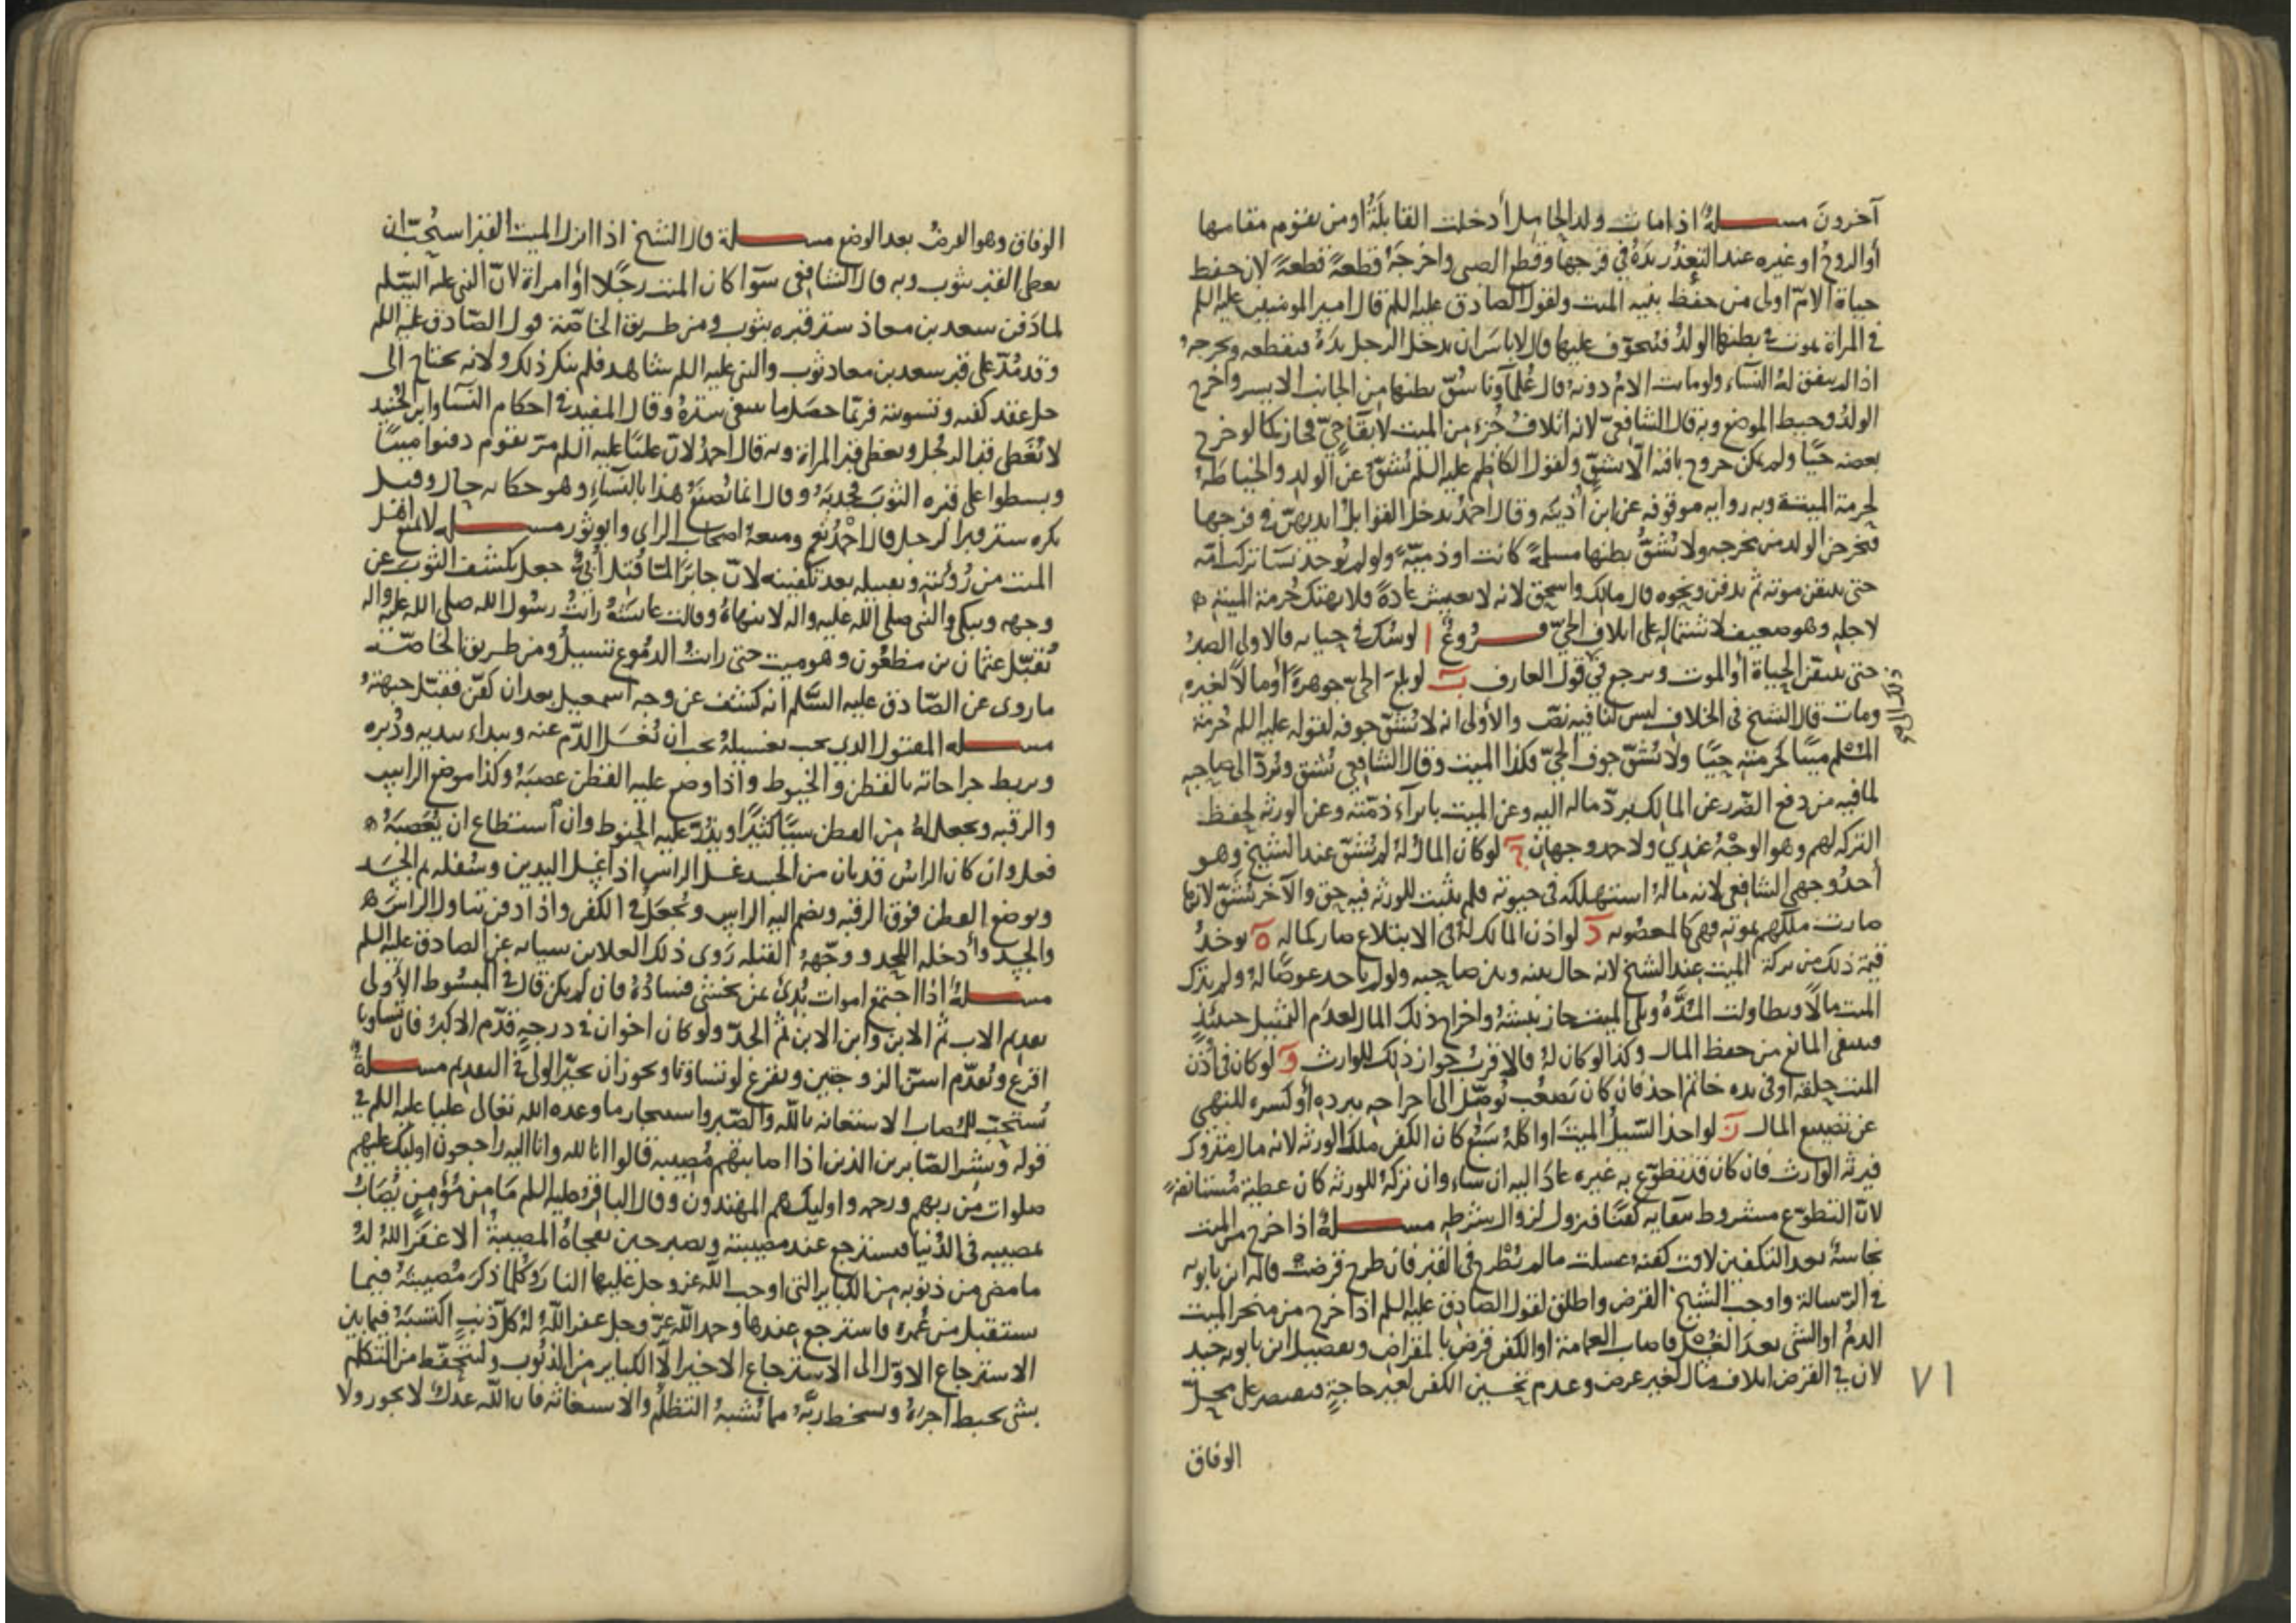 آخرون مسلة اذا مات ولد الحامل أدخلت القابلة او من يقوم مقامها
أو الزوج او غيره عند التعذر يده في فرجها وقطع الصبي واخرجه قطعة قطعة لان حفظ
حياة الام اولى من حفظ بنيه الميت ولقول الصادق عليه السلم قال امير المومنين عليه السلم
في المراة يموت في بطنها الولد فيتخوف عليها قال لا باس ان يدخل الرجل يده فيقطعه ويخرجه
اذا لم يتفق له النساء ولو ماتت الام دونه قال علماونا شق بطنها من الجانب الايسر واخرج
الولد وخيط الموضع وبه قال الشافعي لانه اتلاف جزء من الميت لابقاء حي فجاز كما لو خرج
بعضه حيا ولم يكن خروج باقيه الا بشق ولقول الكاظم عليه السلم يشق عن الولد والخياطة
لحرمة الميتة وبه رواية موقوفه عن ابن أذينه وقال احمد يدخل القوابل ايديهن في فرجها
فيخرجن الولد من مخرجه ولا يشق بطنها مسلمة كانت او ذمية ولو لم يوجد نسا تركت امه
حتى يتيقن موته ثم يدفن ونحوه قال مالك واسحق لانه لا يعيش عادة فلا يهتك حرمة الميته
لاجله وهو ضعيف لاشتماله على اتلاف الحي فروع ا لو شك في حياته فالاولى الصبر
حتى يتيقن الحياة أو الموت ويرجع في قول العارف ب لو بلع الحي جوهرة أو مالا لغيره
ومات قال الشيخ في الخلاف ليس لنا فيه نص والأولى انه لا يشق جوفه لقوله عليه السلم حرمة
المسلم ميتا كحرمته حيا ولا يشق جوف الحي فكذا الميت وقال الشافعي يشق ويرد الى صاحبه
لما فيه من دفع الضرر عن المالك برد ماله اليه وعن الميت بابراء ذمته وعن الورثه لحفظ
التركه لهم وهو الوجه عندي ولاحمد وجهان ج لو كان المال له لم يشق عند الشيخ وهو
أحد وجهي الشافعي لانه ماله استهلكه في حيوته فلم يثبت للورثه فيه حق والآخر يشق لانها
صارت ملكهم بموته فهي كالمغصوبه د لو اذن المالك له في الابتلاع صار كماله ه يوخذ
قيمة ذلك من تركة الميت عند الشيخ لانه حال بينه وبين صاحبه ولو لم ياخذ عوضا له ولم يترك
الميت مالا وتطاولت المده وبلي الميت جاز نبشه واخراج ذلك المال لعدم التمثيل حينئذ
فينتفى المانع من حفظ المال وكذا لو كان له فالاقرب جواز ذلك للوارث و لو كان في أذن
الميت حلقه او في يده خاتم اخذ فان كان يصعب توصل الى اخراجه ببرده أو كسره للنهي
عن تضييع المال ز لو اخذ السيل الميت او اكله سبع كان الكفن ملك الورثه لانه مال متروك
فيرثه الوارث فان كان قد تطوع به غيره عاد اليه ان شاء وان تركه للورثه كان عطية مستانفة
لان التطوع مشروط ببقايه كفنا فيزول لزوال شرطه مسلة اذا خرج من الميت
نجاسة بعد التكفين لاقت كفنه غسلت ما لم يطرح في القبر فان طرح قرضت قاله ابن بابويه
في الرسالة واوجب الشيخ القرض واطلق لقول الصادق عليه السلم اذا خرج من منخر الميت
الدم او الشي بعد الغسل فاصاب العمامة او الكفن قرض بالمقراض وتفصيل ابن بابويه جيد
لان في القرض اتلاف مال لغير غرض وعدم تحسين الكفن لغير حاجة فيقتصر على محل
الوفاق
٧١
الوفاق وهو القرض بعد الوضع مسلة قال الشيخ اذا انزل الميت القبر استحب ان
يغطى القبر بثوب وبه قال الشافعي سوا كان الميت رجلا أو امراة لان النبي عليه السلم
لما دفن سعد بن معاذ ستر قبره بثوب ومن طريق الخاصة قول الصادق عليه السلم
وقد مد على قبر سعد بن معاذ ثوب والنبي عليه السلم شاهد فلم ينكر ذلك ولانه يحتاج الى
حل عقد كفنه وتسويته فربما حصل ما ينبغي ستره وقال المفيد في احكام النساء وابن الجنيد
لا يغطى قبر الرجل ويغطى قبر المراة وبه قال احمد لان عليا عليه السلم مر بقوم دفنوا ميتا
وبسطوا على قبره الثوب فجذبه وقال انما يصنع هذا بالنساء وهو حكاية حال وقيل
يكره ستر قبر الرجل قال احمد نعم ومنعه اصحاب الراي وابو ثور مسلة لا يمنع اهل
الميت من رؤيته وتقبيله بعد تكفينه لان جابرا لما قتل أبوه جعل يكشف الثوب عن
وجهه ويبكي والنبي صلى الله عليه واله لا ينهاه وقالت عايشة رايت رسول الله صلى الله عليه واله
يقبل عثمان بن مظعون وهو ميت حتى رايت الدموع تسيل ومن طريق الخاصة
ما روى عن الصادق عليه السلم انه كشف عن وجه اسمعيل بعد ان كفن فقبل جبهته
مسلة المقتول الذي يجب تغسيله يجب ان يغسل الدم عنه ويبداء بيديه ودبره
ويربط جراحاته بالقطن والخيوط واذا وضع عليه القطن عصبه وكذا موضع الراس
والرقبه ويجعل له من القطن شيا كثيرا ويذر عليه الحنوط وان استطاع ان يعصبه
فعل وان كان الراس قد بان من الجسد غسل الراس اذا غسل اليدين وسفله ثم الجسد
ويوضع القطن فوق الرقبه ويضم اليه الراس ويجعل في الكفن واذا دفن تناول الراس
والجسد وأدخله اللحد ووجهه القبله روى ذلك العلا بن سيابه عن الصادق عليه السلم
مسلة اذا اجتمع اموات بدئ عن يخشى فساده فان لم يكن قال في المبسوط الأولى
تقديم الاب ثم الابن وابن الابن ثم الجد ولو كان اخوان في درجة قدم الاكبر فان تساويا
اقرع ويقدم اسن الزوجتين ويقرع لو تساوتا ويجوز ان يخير الولي في التقديم مسلة
يستحب للمصاب الاستعانه بالله والصبر واستنجاز ما وعده الله تعالى عليه في
قوله وبشر الصابرين الذين اذا اصابتهم مصيبه قالوا انا لله وانا اليه راجعون اوليك عليهم
صلوات من ربهم ورحمه واوليك هم المهتدون وقال الباقر عليه السلم ما من مؤمن يصاب
بمصيبه في الدنيا فيسترجع عند مصيبته ويصبر حين تفجاه المصيبة الا غفر الله له
ما مضى من ذنوبه من الكباير التي اوجب الله عز وجل عليها النار وكلما ذكر مصيبته فيما
يستقبل من عمره فاسترجع عندها وحمد الله عز وجل غفر الله له كل ذنب اكتسبه فيما بين
الاسترجاع الاول الى الاسترجاع الاخير الا الكباير من الذنوب وليتحفظ من التكلم
بشي يحبط اجره ويسخط ربه مما يشبه التظلم والاستغاثه فان الله عدل لا يجور ولا